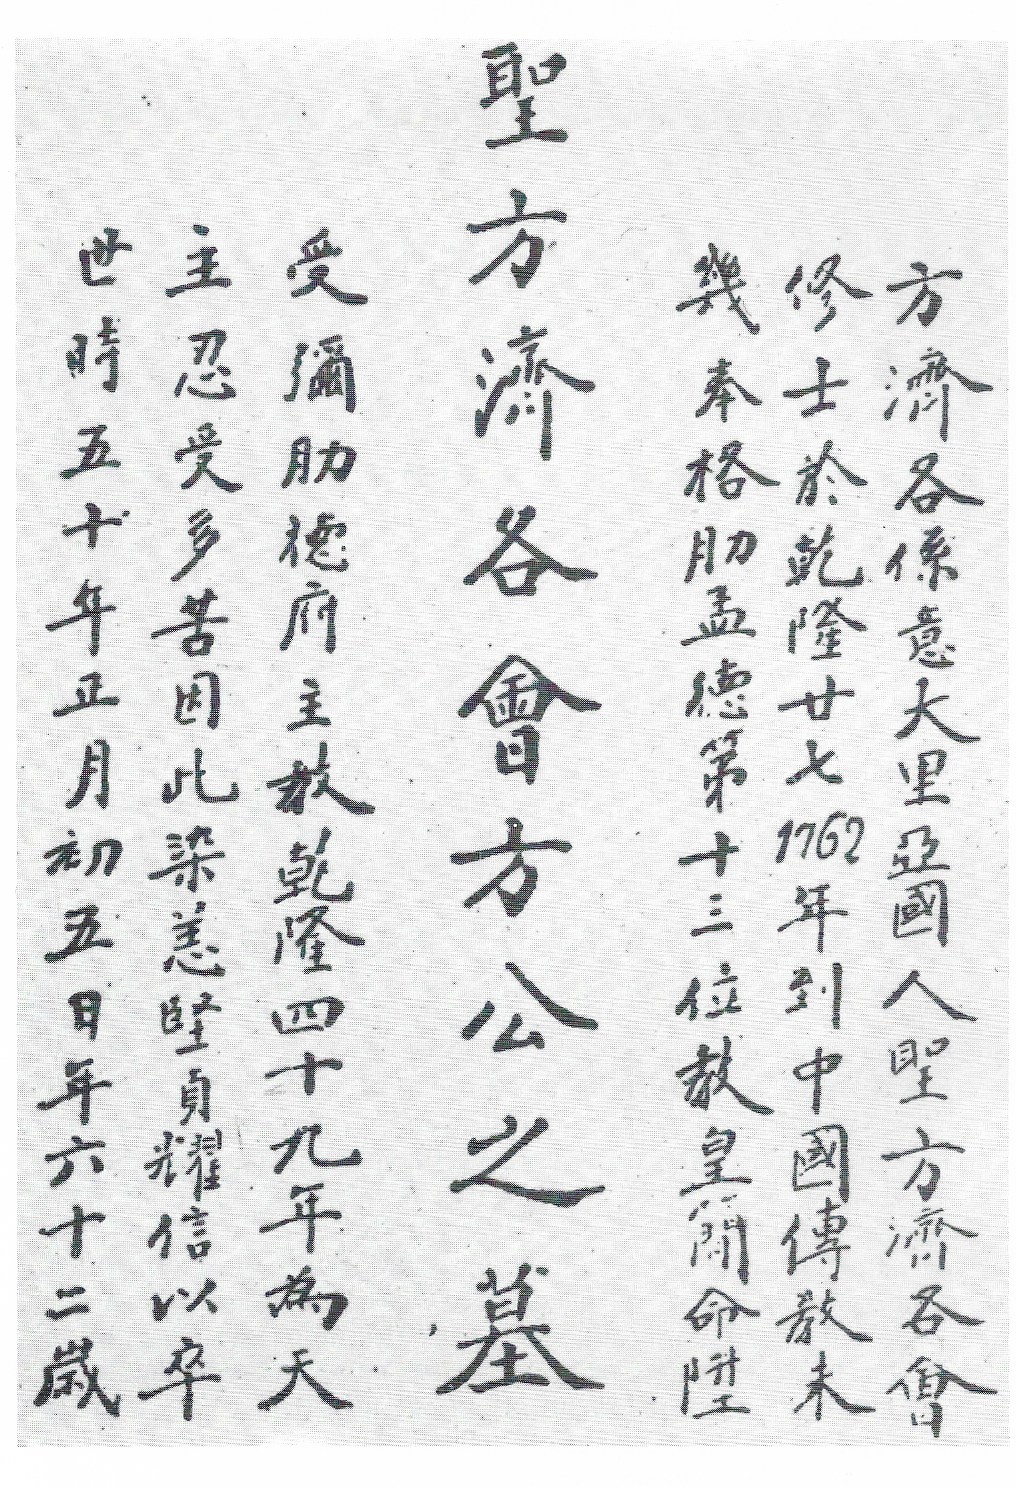 方濟各係意大里亞國人聖方濟各會
修士於乾隆廿七1762年到中國傳教未
幾奉格肋孟德第十三位教皇簡命陞
聖方濟各會方公之墓
受彌肋德府主教乾隆四十九年為天
主忍受多苦因此染恙堅貞耀信以卒
世時五十年正月初五日年六十二歲